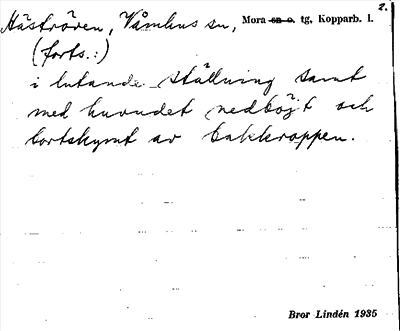 Häströven, Våmhus sn, Mora sn o. tg, Kopparb. l. 2.
(forts.:)
i lutande ställning samt
med huvudet nedböjt och
bortskymt av bakkroppen.
Bror Lindén 1935